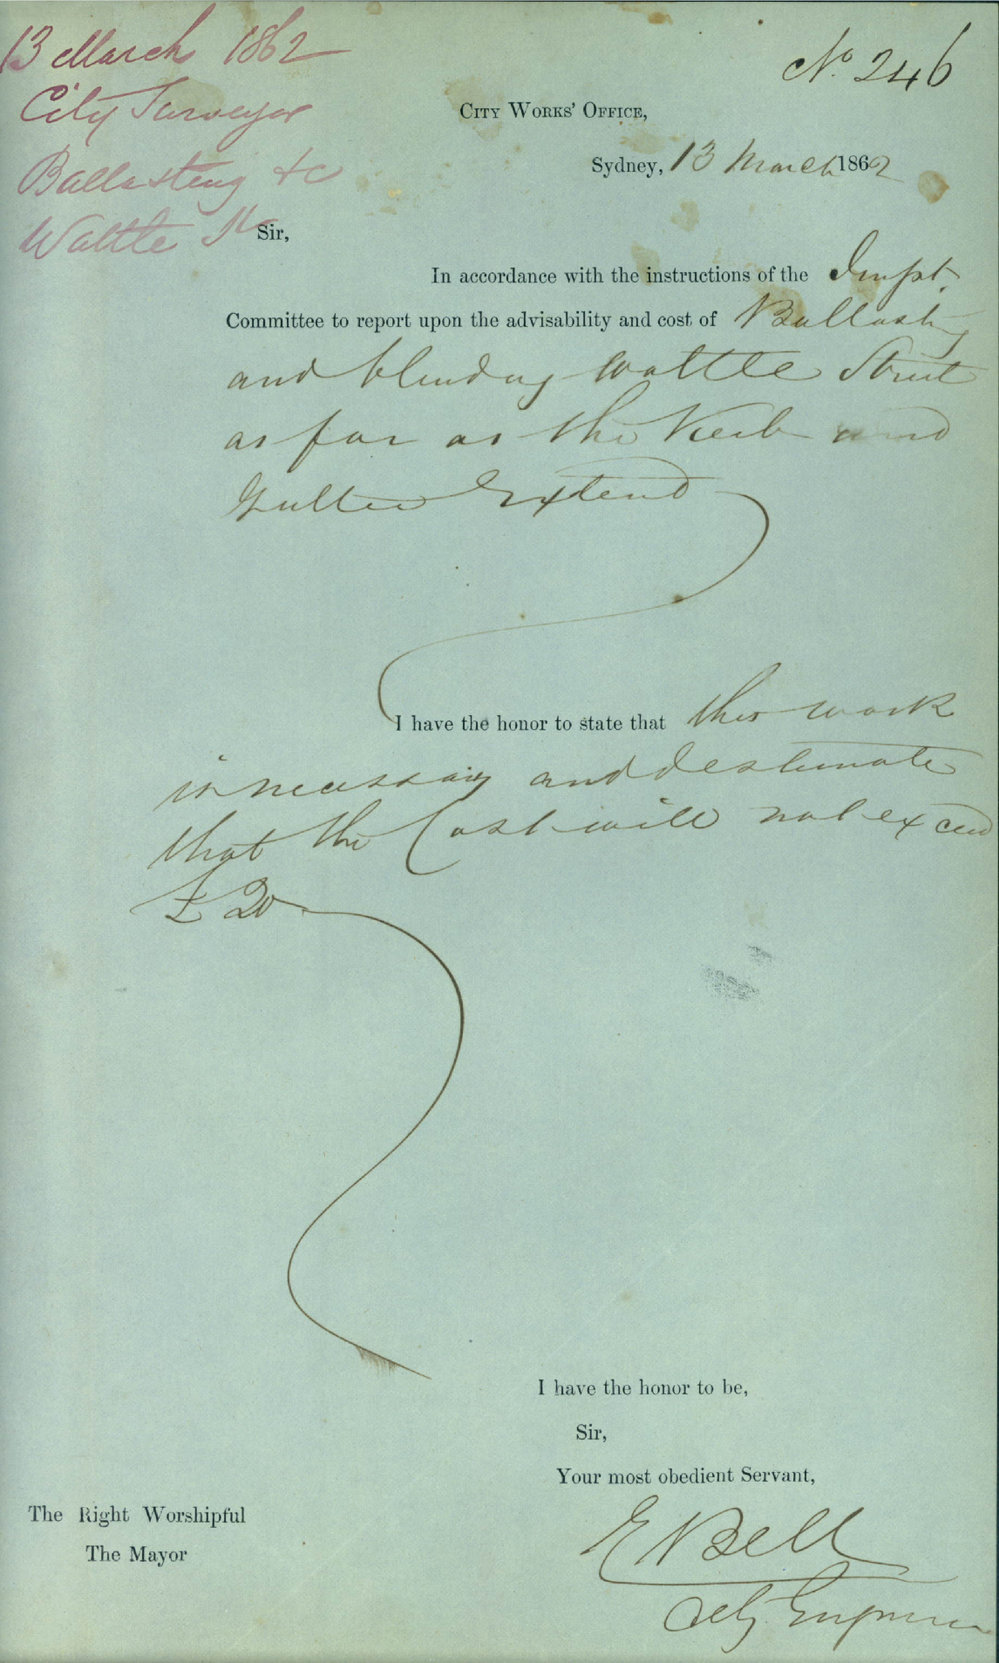 13 March 1862
City Surveyor
Ballasting &c
Wattle St
No. 246
City Works' Office,
Sydney, 13 March 1862
Sir,
In accordance with the instructions of the Impt.
Committee to report upon the advisability and cost of Ballasting
and blinding Wattle Street
as far as the Kerb and
Gutter Extend
I have the honor to state that this work
is necessary and I estimate
that the Cost will not exceed
£20
I have the honor to be,
Sir,
Your most obedient Servant,
E Bell
City Engineer
The Right Worshipful
The Mayor